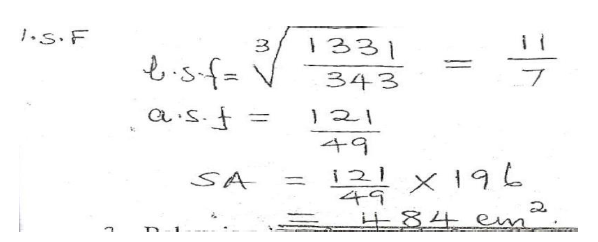 l.s.F
l.s.f = ∛(1331/343) = 11/7
a.s.f = 121/49
SA = 121/49 × 196
= 484 cm².